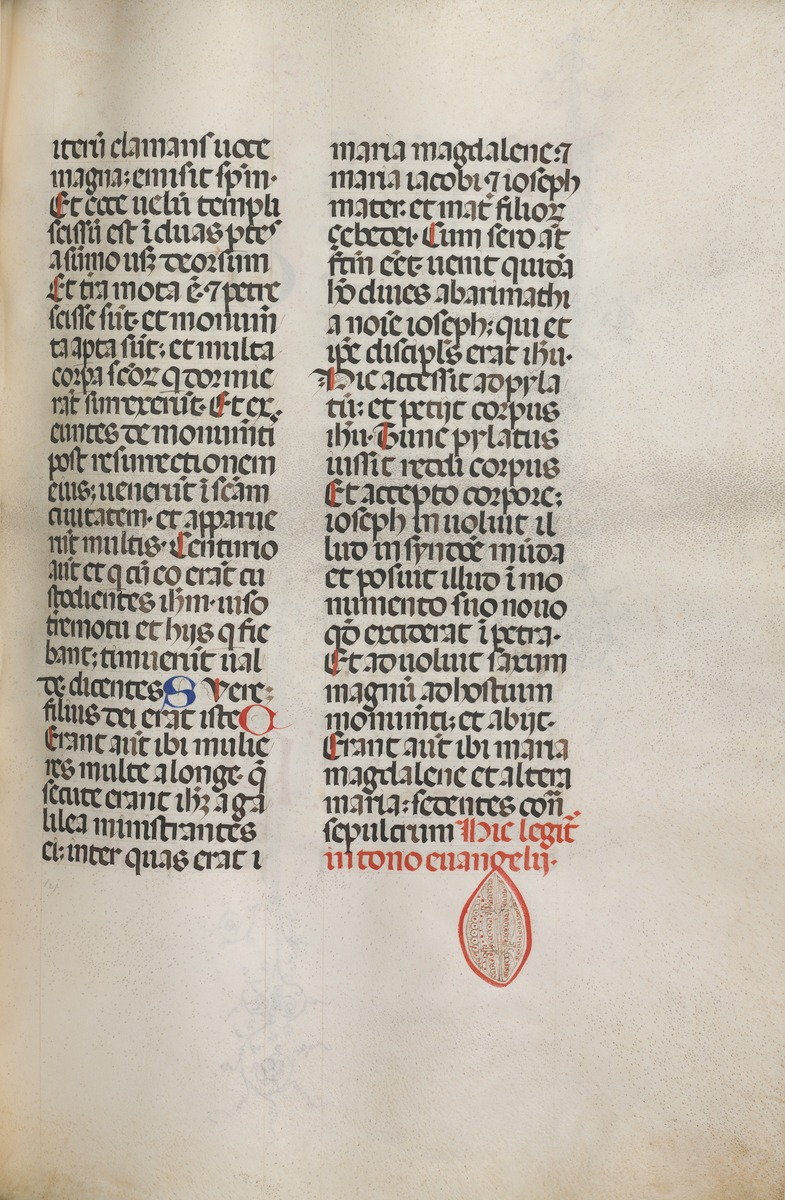 iterũ clamans uoce
magna: emisit spm̃·
Et ecce uelũ templi
scissũ est ĩ duas ptes
a sũmo usꝫ deorsum
Et tr̃a mota ẽ· ⁊ petre
scisse sũt· et monum̃
ta apta sũt: et multa
corpa sc̃oꝝ q dormie
rãt surrexerũt· Et ex
euntes de monum̃ti
post resurrectionem
eius; uenerũt ĩ sc̃am
ciuitatem· et apparue
rũt multis· Centurio
aũt et q cũ eo erãt cu
stodientes ihm̃· uiso
tremotu et hijs q fie
bant; timuerũt ual
de· dicentes S Vere
filius dei erat iste C
Erant aũt ibi mulie
res multe a longe· q̃
secute erant ihꝫ a ga
lilea ministrantes
ei: inter quas erat i
maria magdalene: ⁊
maria iacobi ⁊ ioseph
mater: et mat̃ filioꝝ
çebedei· Cum sero aũt
fc̃m eẽt· uenit quidã
hõ diues abarimathi
a noĩe ioseph: qui et
ip̃e discipl̃s erat ihũ·
Hic accessit ad pyla
tũ: et petijt corpus
ihũ· Tunc pylatus
iussit reddi corpus
Et accepto corpore;
ioseph inuoluit il
lud in syndoẽ mũda
et posuit illud ĩ mo
numento suo nouo
qđ exciderat ĩ petra·
Et aduoluit saxum
magnũ ad hostium
monum̃ti: et abijt·
Erant aũt ibi maria
magdalene et altera
maria: sedentes con̄
sepulcrum Hic legit̃
in tono euangelij·